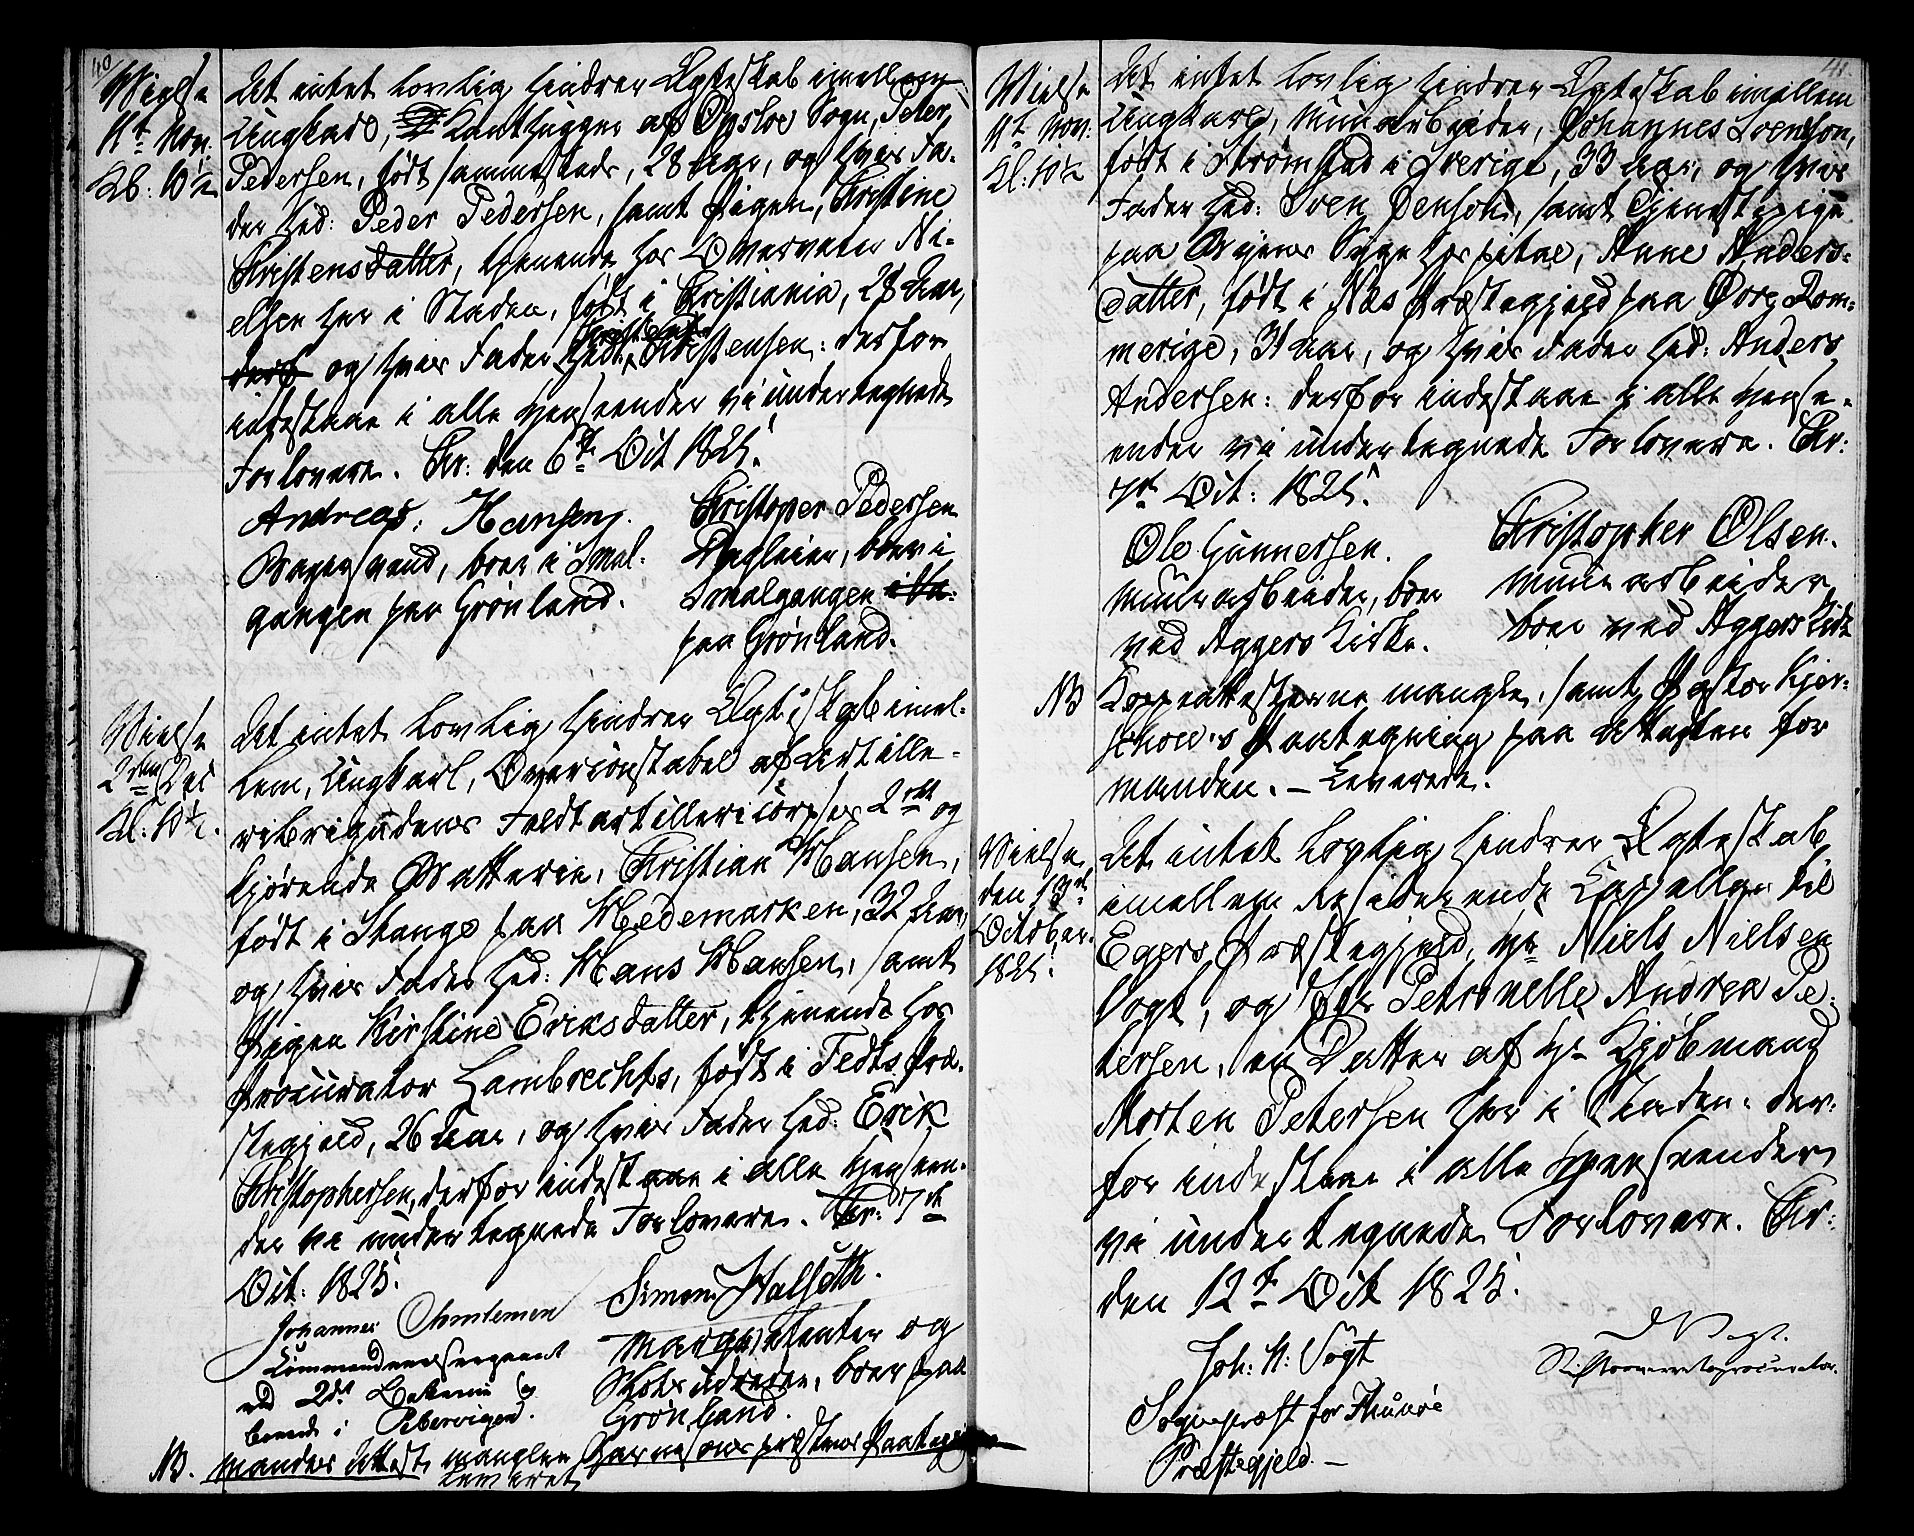 40
Vielse
11t Nov.
Kl: 10½
Det intet Lovlig hindrer Ægteskab imellem
Ungkarl, Kanthugger af Opsloe Sogn, Peter
Pedersen, født sammesteds, 28 Aar, og hvis Fa-
der hed: Peder Pedersen, samt Pigen, Christine
Christensdatter, tjenende hos Overvater Ni-
elsen her i Staden, født i Christiania, 28 Aar,
og hvis Fader hed Christensen: derfor
indestaae i alle Henseender vi undertegnede
Forlovere. Chr: den 6te Oct 1825.
Andreas Hansen.
Bagersvend, boer i Smal-
gangen paa Grønland.
Christopher Pedersen
Dagleier, boer i
Smalgangen
paa Grønland.
Vielse
2den Dec
Kl: 10½.
Det intet Lovlig hindrer Ægteskab imel-
lem, Ungkarl, Overconstabel af Artille-
ribrigadens Feldtartillericorpses 2det og
kjørende Batterie, Christian Hansen,
født i Stange paa Hedemarken, 32 Aar,
og hvis Fader hed: Hans Hansen, samt
Pigen Kirstine Eriksdatter, tjenende hos
Procurator Lambrechts, født i Tedts Præ-
stegjeld, 26 Aar, og hvis Fader hed: Erik
Christophersen, derfor indestaae i alle Henseen-
der vi undertegnede Forlovere. Chr: 7de
Oct: 1825.
Johannes Christensen
Commandeersergeant
ved 2det Batterie og
boende i Pibervigen.
Simen Halseth.
Marquetenter og
Skoeudreder, boer paa
Grønland.
NB. Mandens Attest mangler Garnisonspræstens Paategning
leveret
41.
Vielse
11t Nov.
Kl: 10½
Det intet Lovlig hindrer Ægteskab imellem
Ungkarl, Muurarbeider, Johannes Svenson,
født i Strømstad i Sverige, 33 Aar, og hvis
Fader hed: Sven Jenson, samt Tjenestepige
paa Byens Sygehospital, Anne Anders-
datter, født i Næs Præstegjeld paa Øvre Rom-
merige, 31 Aar, og hvis Fader hed: Anders
Andersen: derfor indestaae i alle Hense-
ender vi undertegnede Forlovere. Chr:
7de Oct: 1825.
Ole Gunnersen.
Muurarbeider, boer
ved Aggers Kirke.
Christopher Olsen.
Muurarbeider
boer ved Aggers Kirke
NB Koppeattesterne mangle, samt Pastor Kjer-
schow's Paategning paa Attesten for
Manden. – Leverede.
Vielse
den 13de
October
1825.
Det intet Lovlig hindrer Ægteskab
imellem residerende Capellan til
Egers Præstegjeld, Hr Niels Nielsen
Vogt, og Jfr Petronelle Andrea Pe-
tersen, en Datter af Hr Kjøbmand
Morten Petersen her i Staden: der-
for indestaae i alle Henseender
vi undertegnede Forlovere. Chr:
den 12te Oct 1825.
Joh: H: Vogt
Sognepræst for Thunøe
Præstegjeld. –
J Vogt.
Stiftsoverretsprocurator.